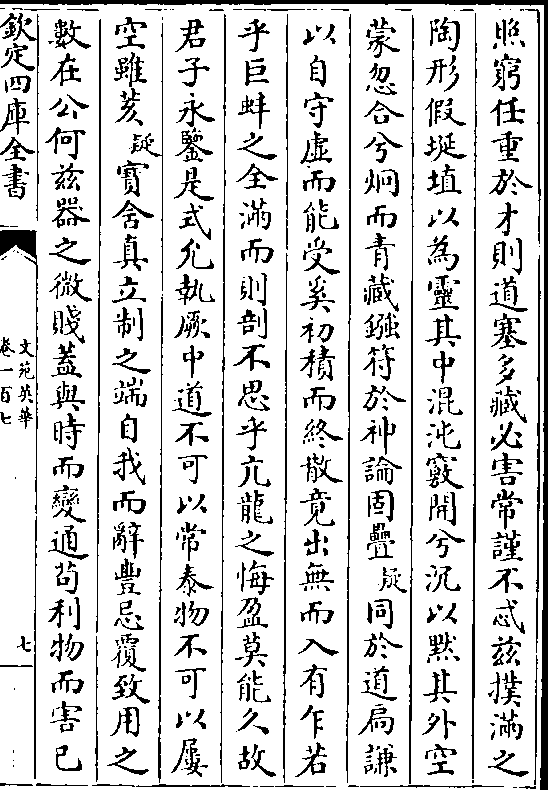 照窮任重於才則道塞多藏必害常謹不忒兹撲滿之
陶形假埏埴以為靈其中混沌竅開兮沉以黙其外空
蒙忽合兮炯而青藏鏹符於神論固疊疑同於道扃謙
以自守虛而能受奚初積而終散竟出無而入有乍若
乎巨蚌之全滿而則剖不思乎亢龍之悔盈莫能久故
君子永鑒是式允執厥中道不可以常泰物不可以屢
空雖芨疑寶舍真立制之端自我而辭豐忌覆致用之
數在公何兹器之微賤蓋與時而變通苟利物而害已
欽定四庫全書
文苑英華
卷一百七
七